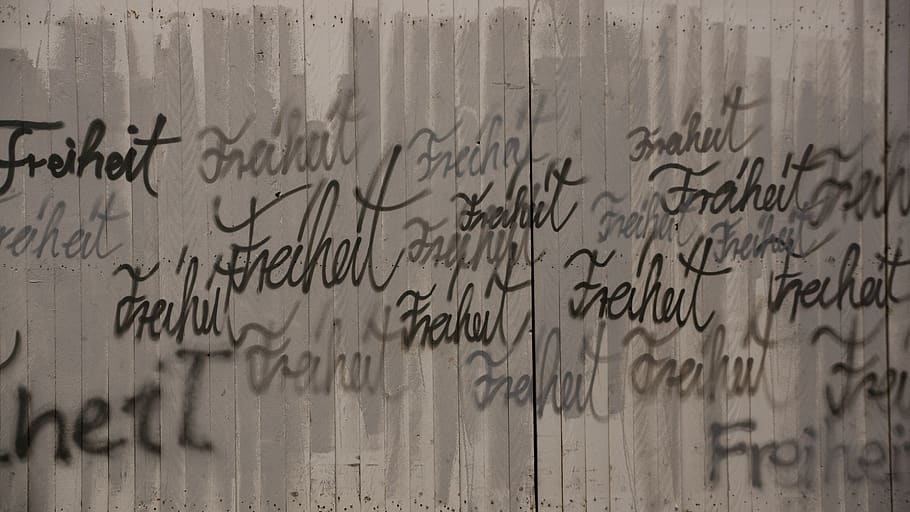 Freiheit
Freiheit
Freiheit
Freiheit
Freiheit
Freiheit
Freih
reiheit
Freiheit
Freiheit
Freiheit
Freiheit
Freiheit
Freiheit
Freiheit
Freiheit
Freiheit
Freiheit
Freiheit
Freiheit
Frei
heiT
Freihei